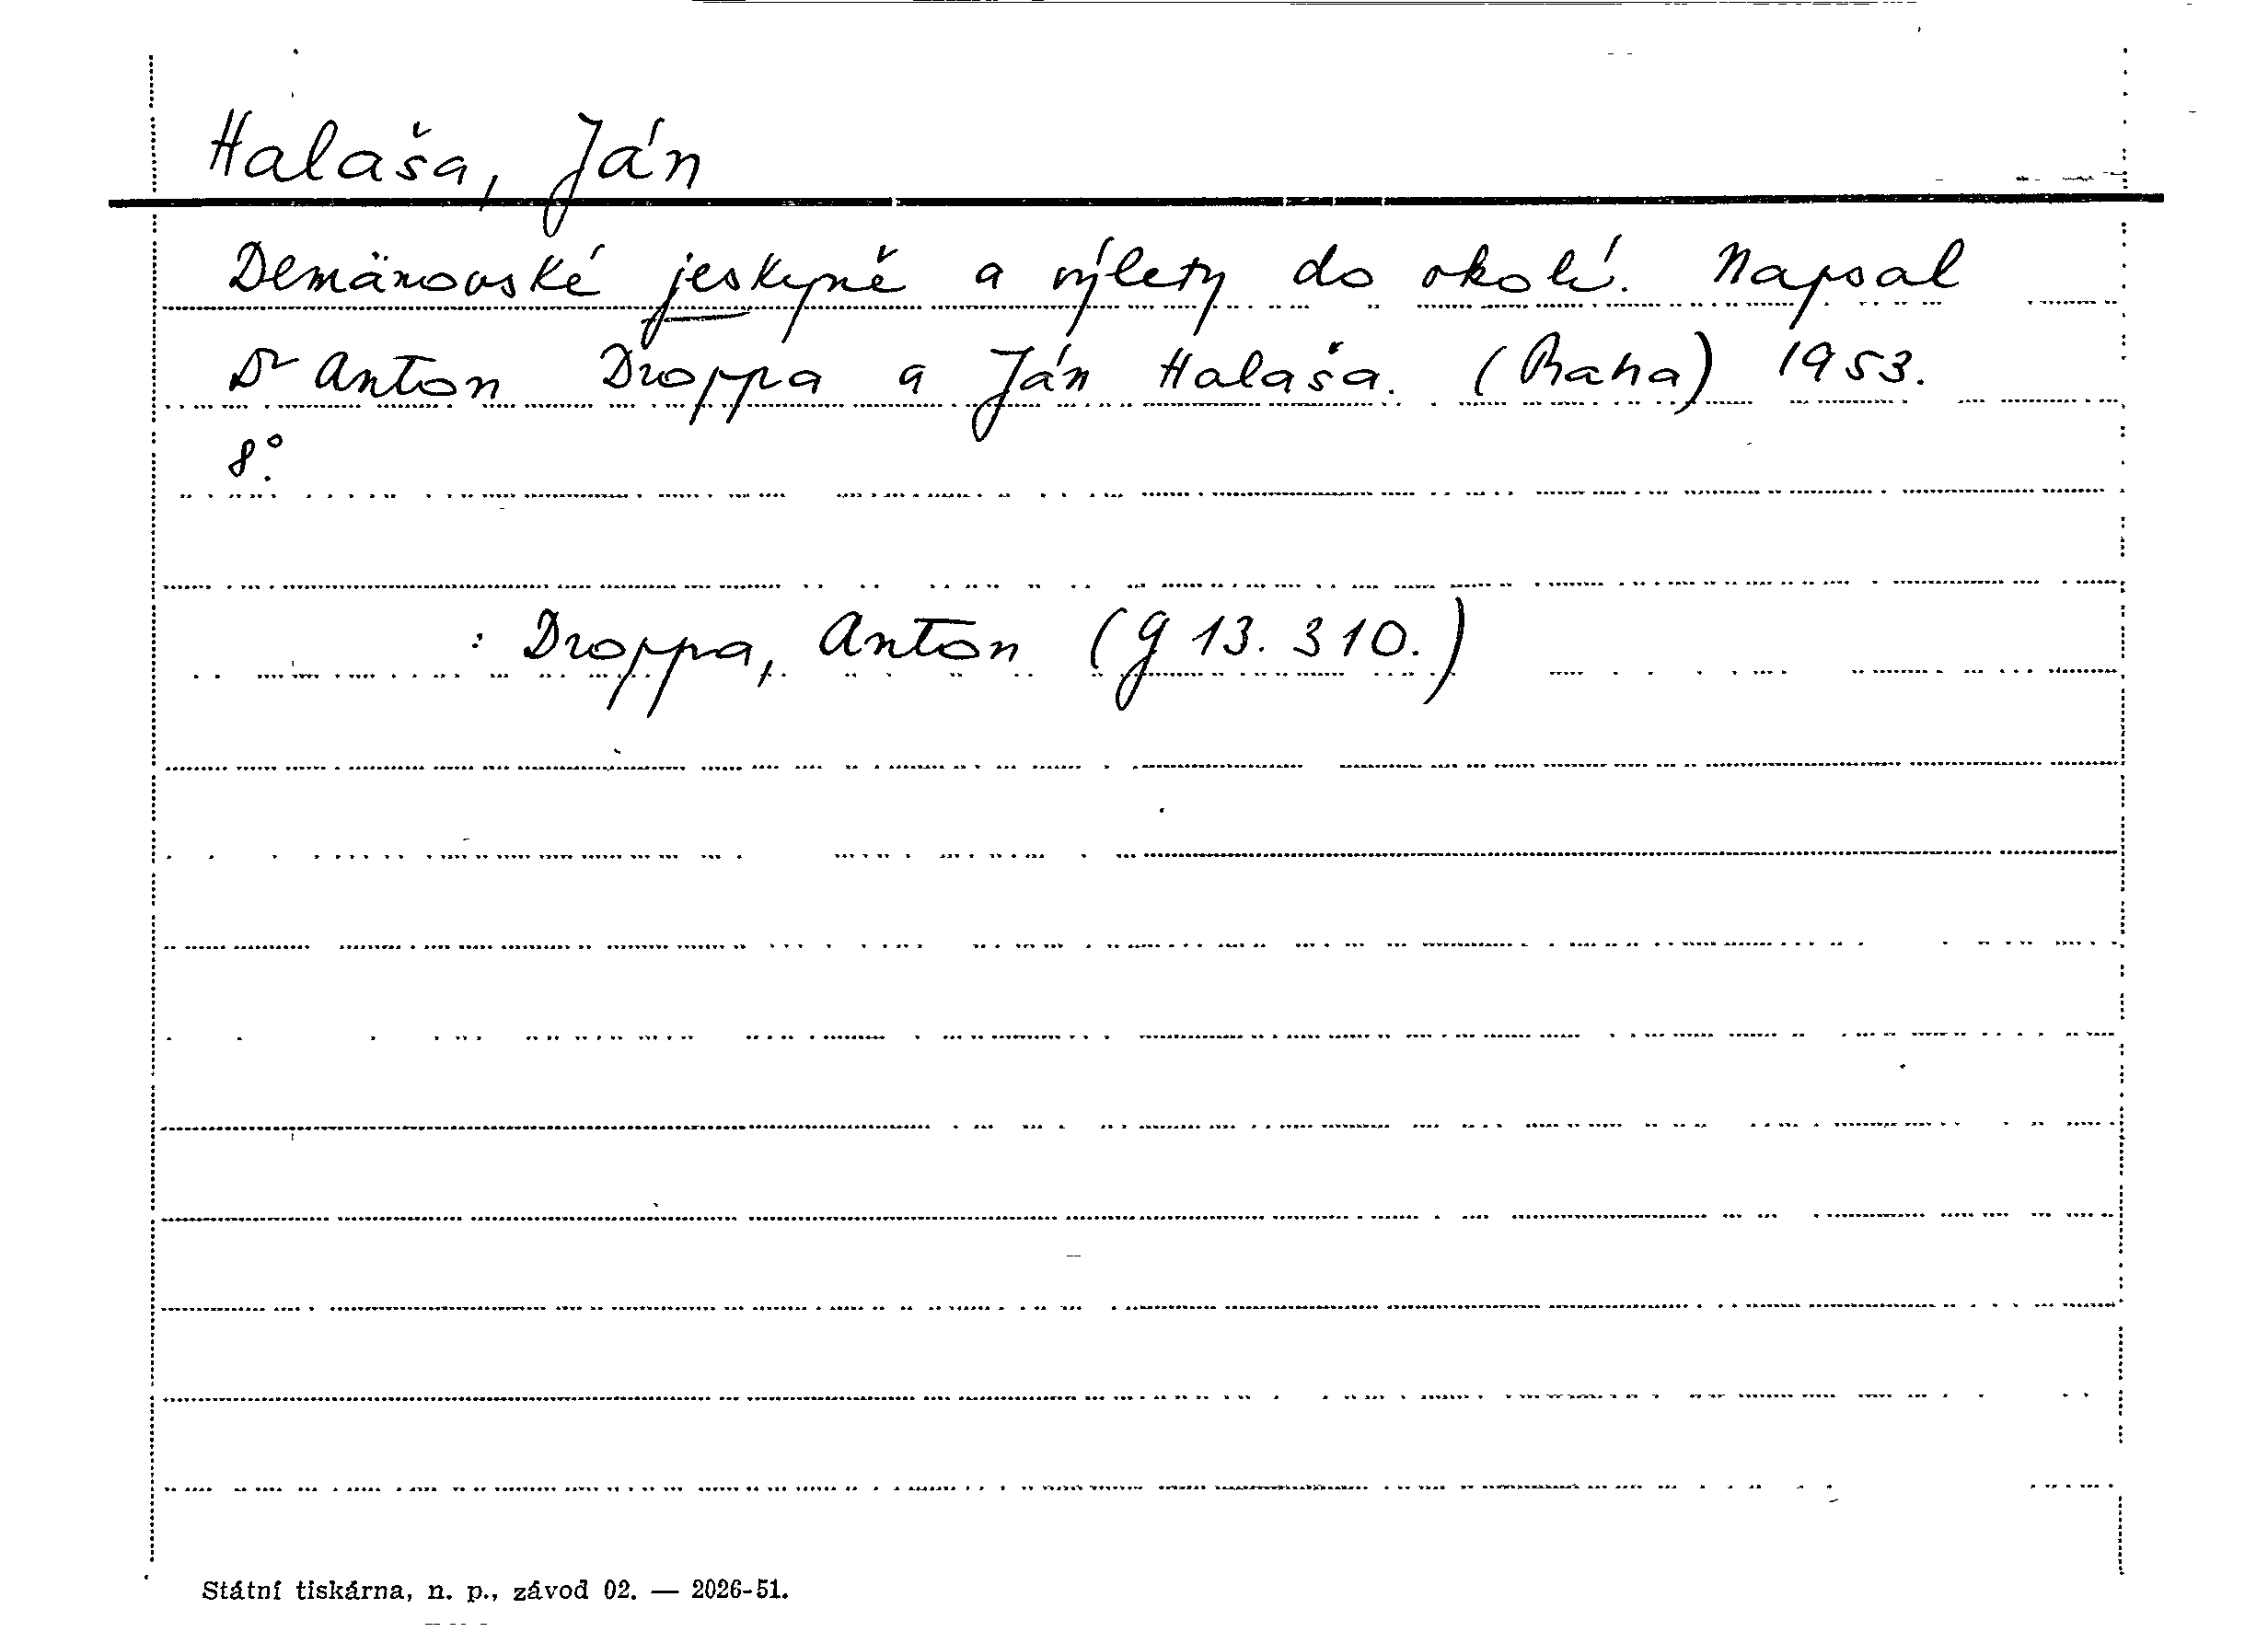 Halaša, Ján
Demänovské jeskyně a výlety do okolí. Napsal
Dr Anton Droppa a Ján Halaša. (Praha) 1953.
8°.
: Droppa, Anton (G 13.310.)
Státní tiskárna, n. p., závod 02. — 2026-51.